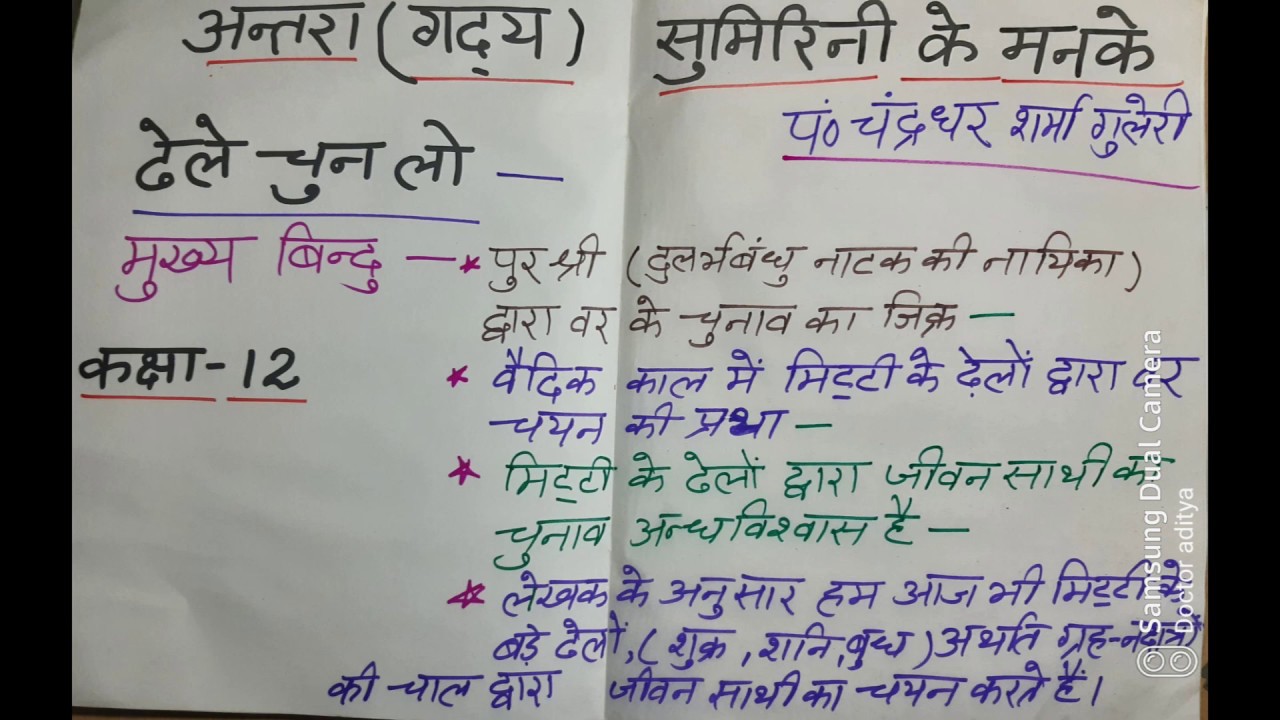 अन्तरा (गद्य) सुमिरिनी के मनके
पं० चंद्रधर शर्मा गुलेरी
ढेले चुन लो —
मुख्य बिन्दु — * पुरश्री (दुलर्भबंधु नाटक की नायिका)
द्वारा वर के चुनाव का जिक्र —
कक्षा-12
* वैदिक काल में मिट्टी के ढ़ेलों द्वारा वर
चयन की प्रथा —
* मिट्टी के ढेलों द्वारा जीवन साथी का
चुनाव अन्धविश्वास है —
* लेखक के अनुसार हम आज भी मिट्टी के
बड़े ढेलों, (शुक्र, शनि, बुध) अर्थात ग्रह-नक्षत्रों
की चाल द्वारा जीवन साथी का चयन करते हैं।
Samsung Dual Camera
Doctor aditya